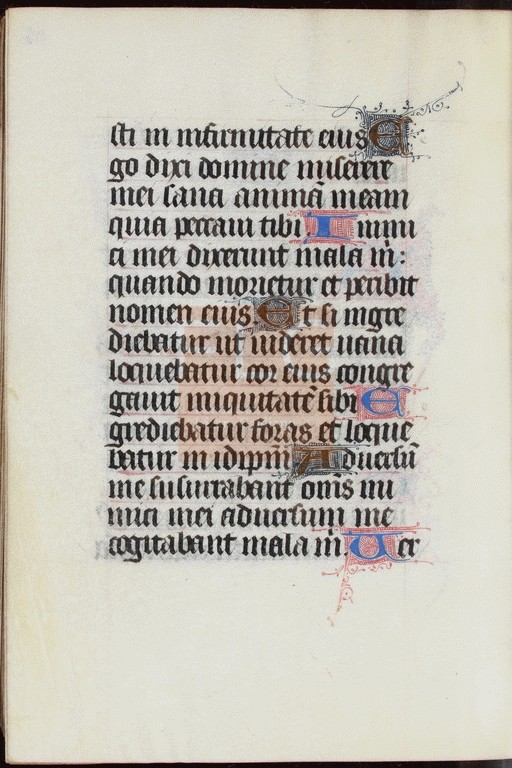 sti in infirmitate eius E
go dixi domine miserere
mei sana animā meam
quia peccaui tibi. I nimi
ci mei dixerunt mala m̄:
quando morietur et peribit
nomen eius E t si ingre
diebatur ut uideret uana
loquebatur cor eius congre
gauit iniquitatē sibi E
grediebatur foras et loque
batur in idipm̄ A duersū
me susurrabant om̄s ini
mici mei aduersum me
cogitabant mala m̄. U er